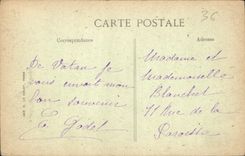 CARTE POSTALE
36
Correspondance
Adresse
De Vatan je
vous envoie mon
bon souvenir
G Godet
Madame et
Mademoiselle
Blanchet
11 Rue de la
Paroisse